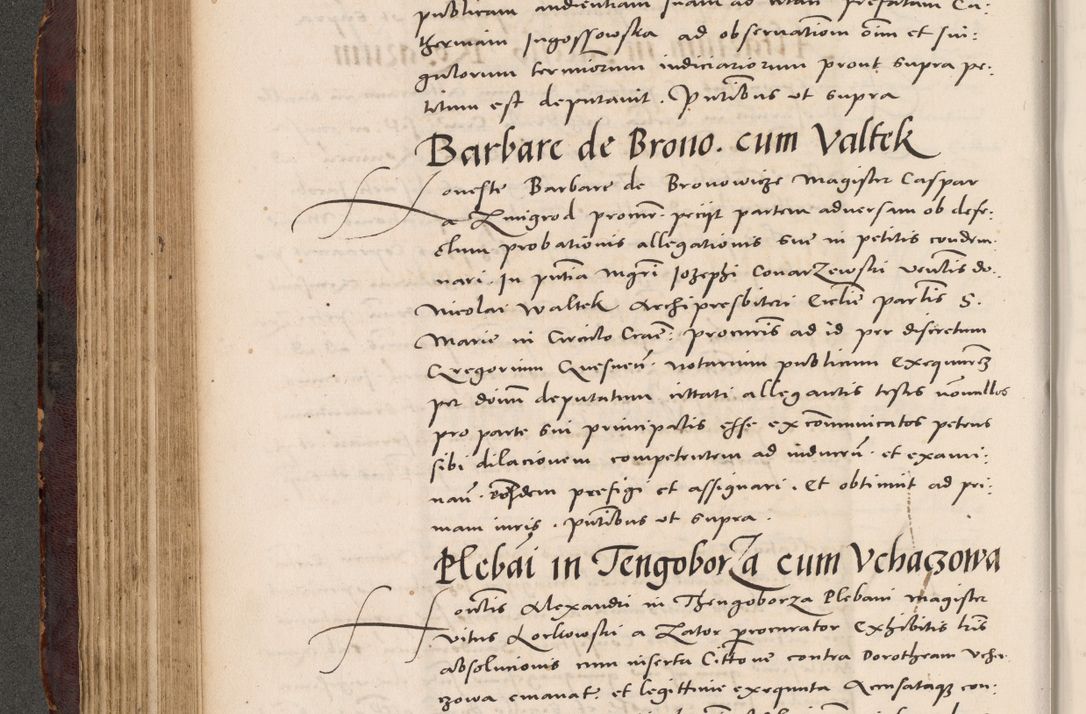 publicam audientiam suam ad vitan. prefatam Ca:
therinam Jngossowska ad observationem om̅ et sin:
gulorum terminorum iudiciariorum prout supra pe:
titum est deputavit. Pn̅tibus vt supra
Barbare de Brono. cum Valtek
Honeste Barbare de Bronowicze Magister Caspar
a Zmigrod procur̅. peciit partem adversam ob defe:
ctum probationis allegationis sue in petitis condem:
nari. In pn̅tia mgr̅i Jozephi Conarzewski ven̅tis do.
Nicolai Waltek Archipresbiteri Eccl̅ie par̅tis S.
Marie in Circulo Crac̅: procuris ad id per discretum
Gregorium Quesnen̅. notarium publicum Exequuren̅
per doin̅ deputatum cittati allegantis testes no̅nullos
pro parte sui principalis esse exco̅municatos petens
sibi dilacionem competentem ad inducen̅. et exami:
nan̅. eosdem prefigi et assignari. Et obtinuit ad pri:
mam iuris. Pn̅tibus vt supra.
Plebāi in Tengoborza cum Vchaczowa
Hon̅tis Alexandri in Thengoborza Plebani Magister
vitus Lorkowski a Zator procurator Exhibitis lr̅is
absolucionis cum inserta Citt̅one contra Dorotheam Vcha:
czowa emanat̅. et legittime exequuta Accusataq̅ con: